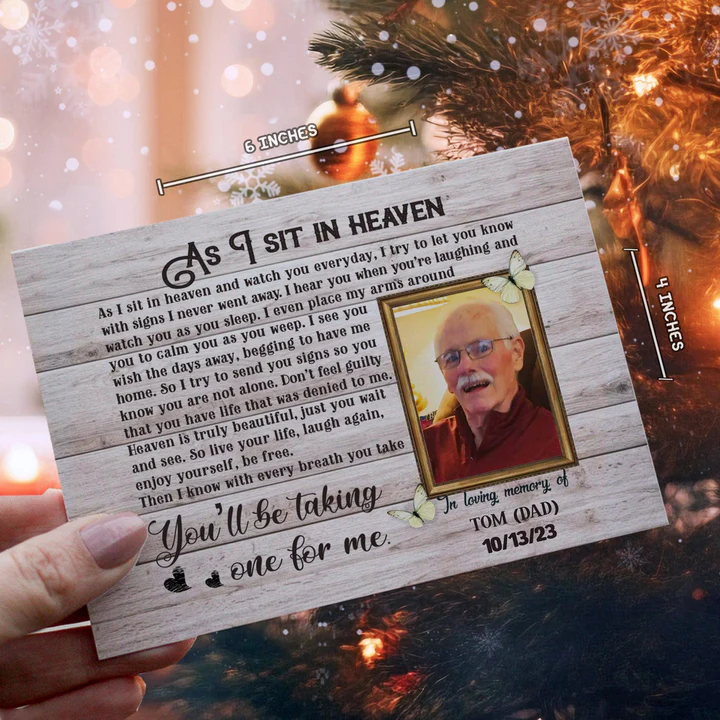 6 INCHES
4 INCHES
As I sit in heaven
As I sit in heaven and watch you everyday, I try to let you know
with signs I never went away. I hear you when you're laughing and
watch you as you sleep. I even place my arms around
you to calm you as you weep. I see you
wish the days away, begging to have me
home. So I try to send you signs so you
know you are not alone. Don't feel guilty
that you have life that was denied to me.
Heaven is truly beautiful, just you wait
and see. So live your life, laugh again,
enjoy yourself, be free.
Then I know with every breath you take
You'll be taking
one for me.
In loving memory of
TOM (DAD)
10/13/23